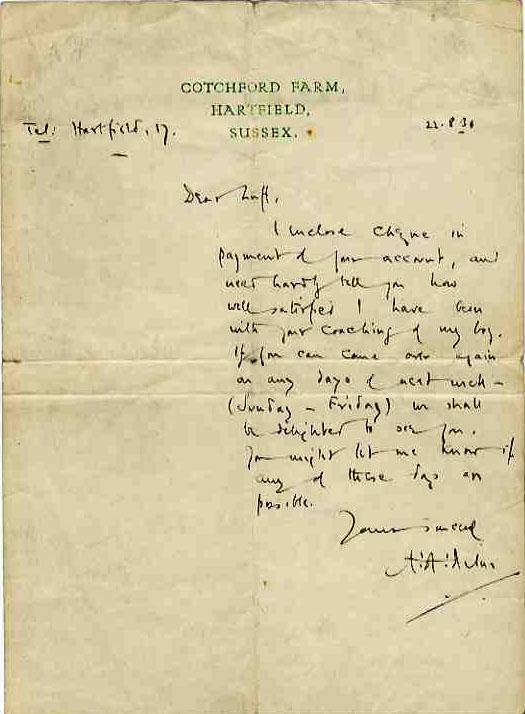 COTCHFORD FARM,
HARTFIELD,
SUSSEX.
Tel: Hartfield, 17.
22.8.36
Dear
I enclose cheque in
payment of your account, and
need hardly tell you how
well satisfied I have been
with your coaching of my boy.
If you can come over again
on any days of next week –
(Sunday – Friday) we shall
be delighted to see you.
You might let me know if
any of these days are
possible.
Yours sincerely
A.A. Milne